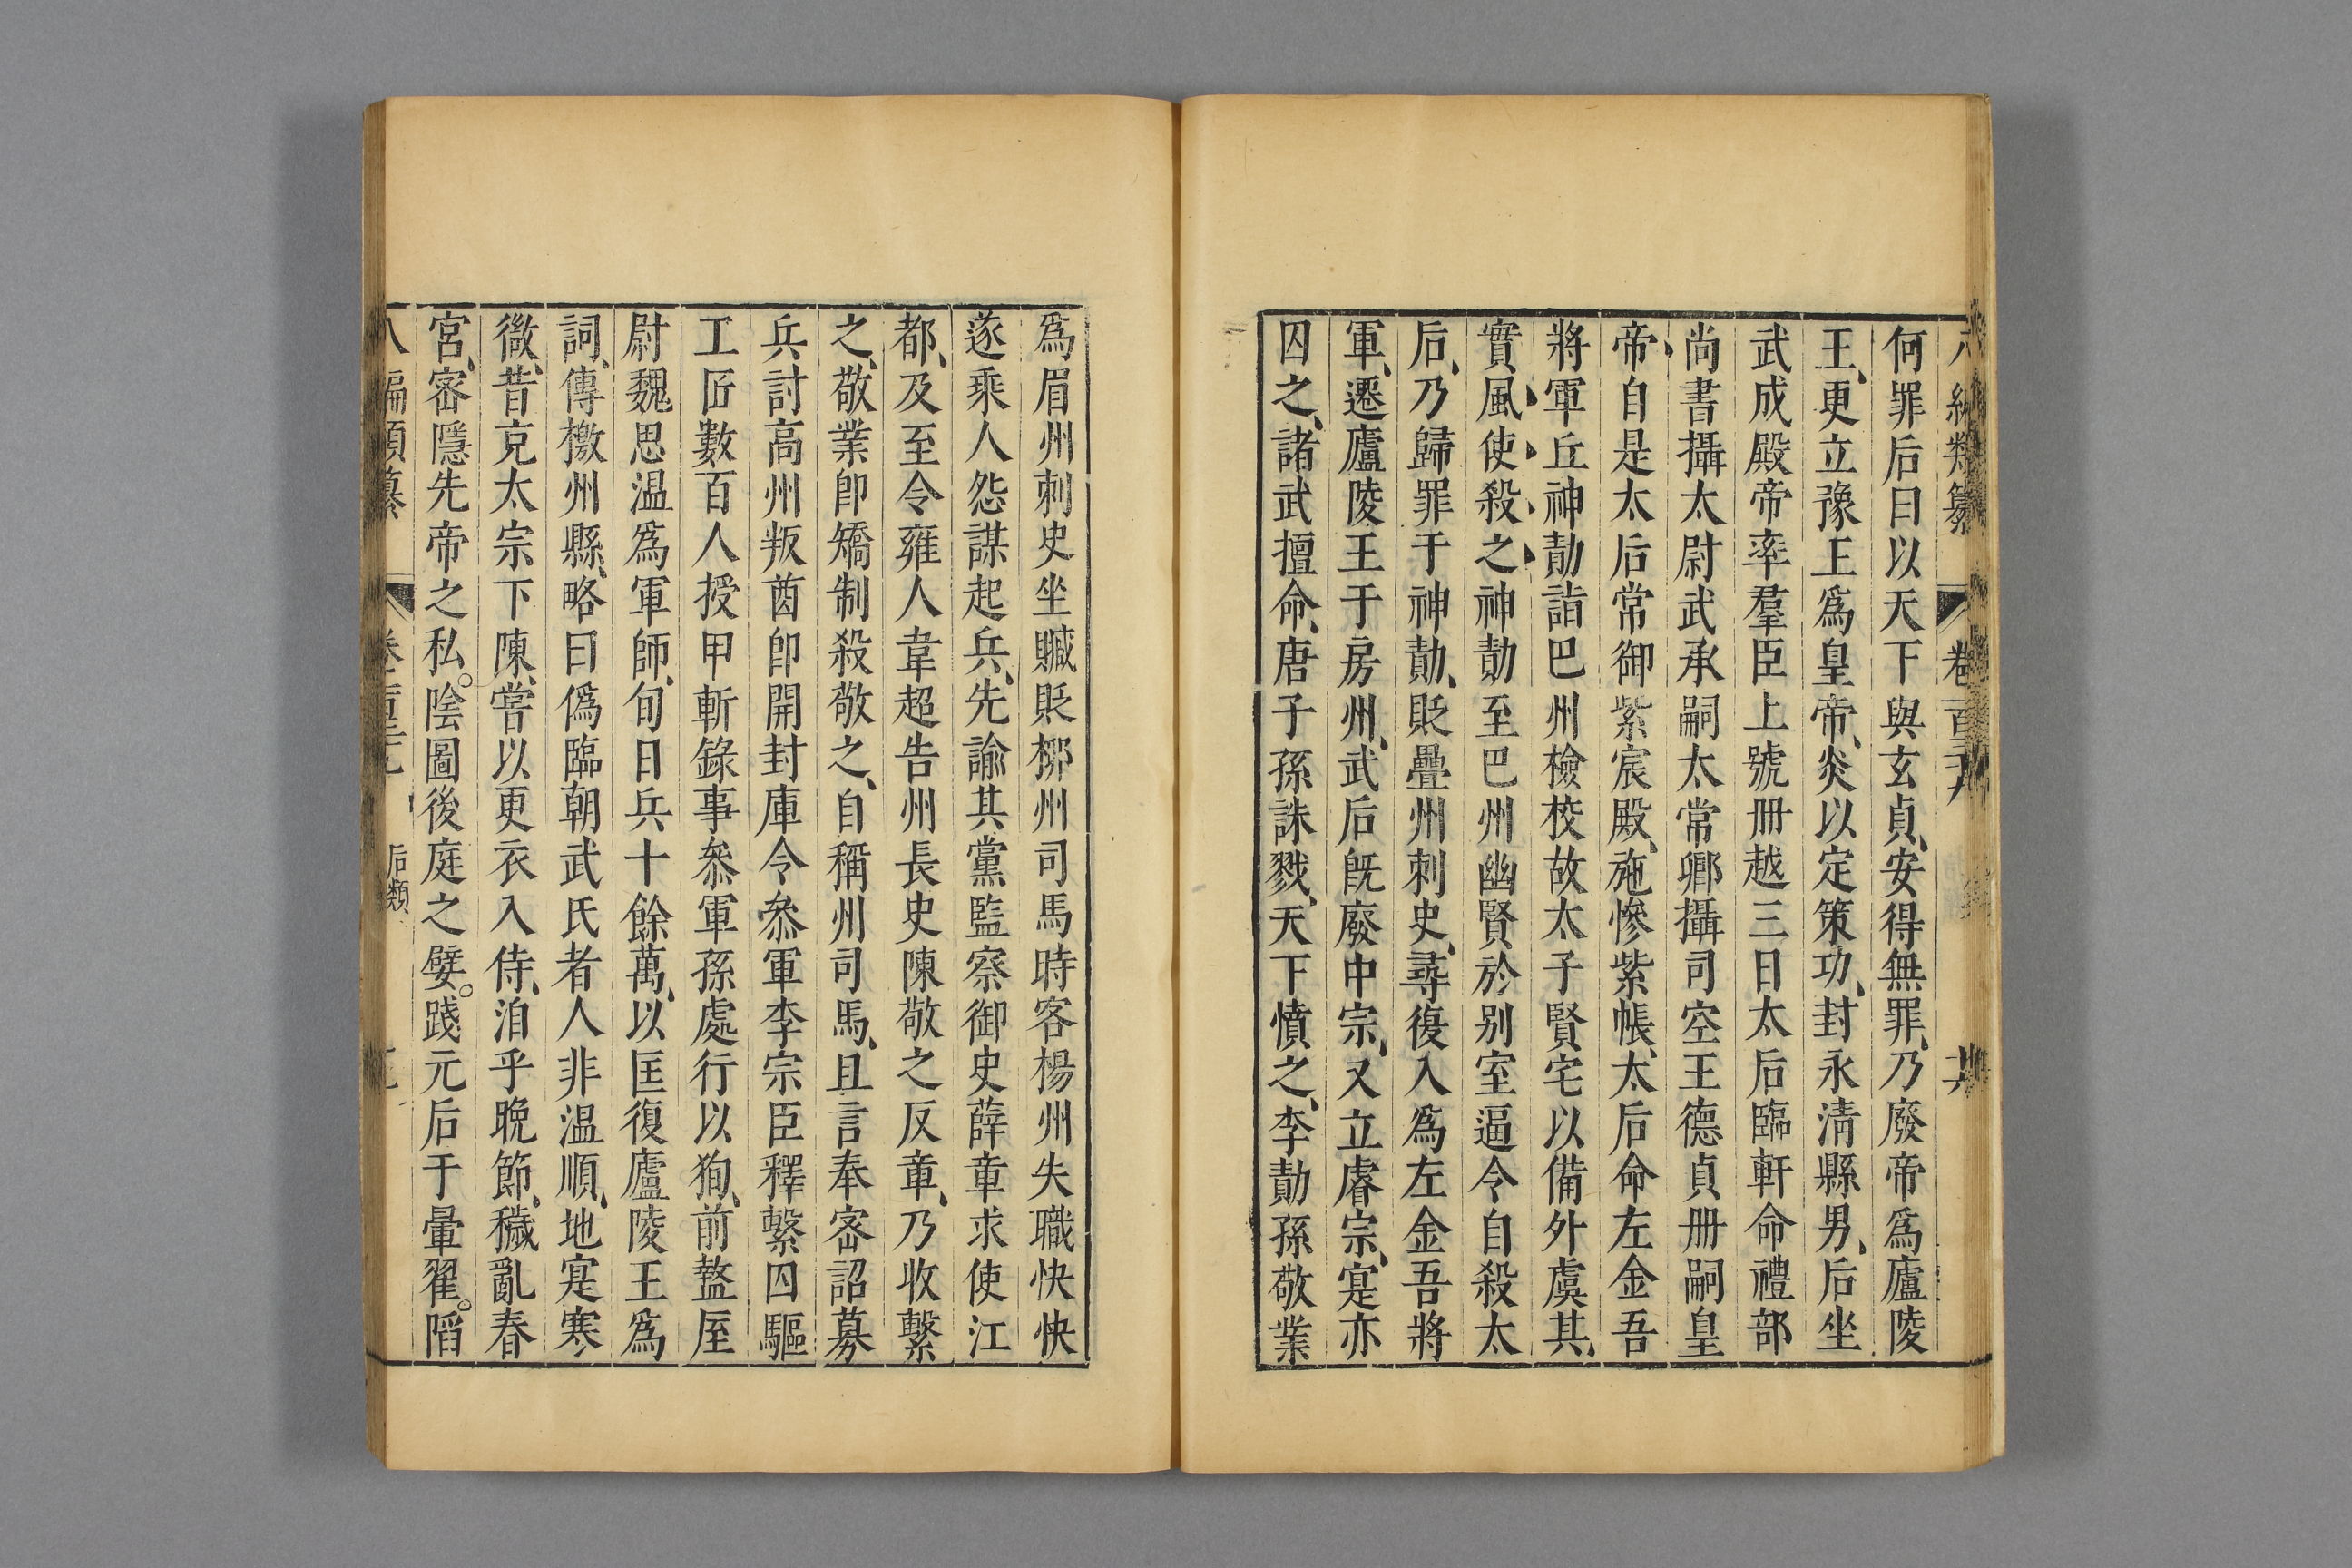 編類纂 卷一百
何罪后曰以天下與玄貞、安得無罪、乃廢帝爲廬陵
王、更立豫王爲皇帝、炎以定策功、封永淸縣男、后坐
武成殿帝率羣臣上號册越三日太后臨軒命禮部
尚書攝太尉武承嗣太常卿攝司空王德貞册嗣皇
帝、自是太后常御紫宸殿、施慘紫帳、太后命左金吾
將軍丘神勣詣巴州檢校故太子賢宅以備外虞其、
實風使殺之神勣至巴州幽賢於別室逼令自殺太
后、乃歸罪于神勣、貶疊州刺史、尋復入爲左金吾將
軍、遷廬陵王于房州、武后旣廢中宗、又立睿宗、寔亦
囚之、諸武擅命、唐子孫誅戮、天下憤之、李勣孫敬業
爲眉州刺史坐贓貶桺州司馬時客楊州失職怏怏
遂乘人怨謀起兵、先諭其黨監察御史薛章求使江
都、及至令雍人韋超告州長史陳敬之反章、乃收繫
之、敬業卽矯制殺敬之、自稱州司馬、且言奉密詔募
兵討高州叛酋卽開封庫令叅軍李宗臣釋繫囚驅
工匠數百人授甲斬錄事叅軍孫處行以狥、前盩厔
尉魏思温爲軍師、旬日兵十餘萬、以匡復廬陵王爲
詞、傳檄州縣、略曰僞臨朝武氏者人非温順、地寔寒
微、昔克太宗下陳、嘗以更衣入侍、洎乎晚節、穢亂春
宮、密隱先帝之私。陰圖後庭之嬖。踐元后于翬翟。陷
八編類纂 卷一百 后類